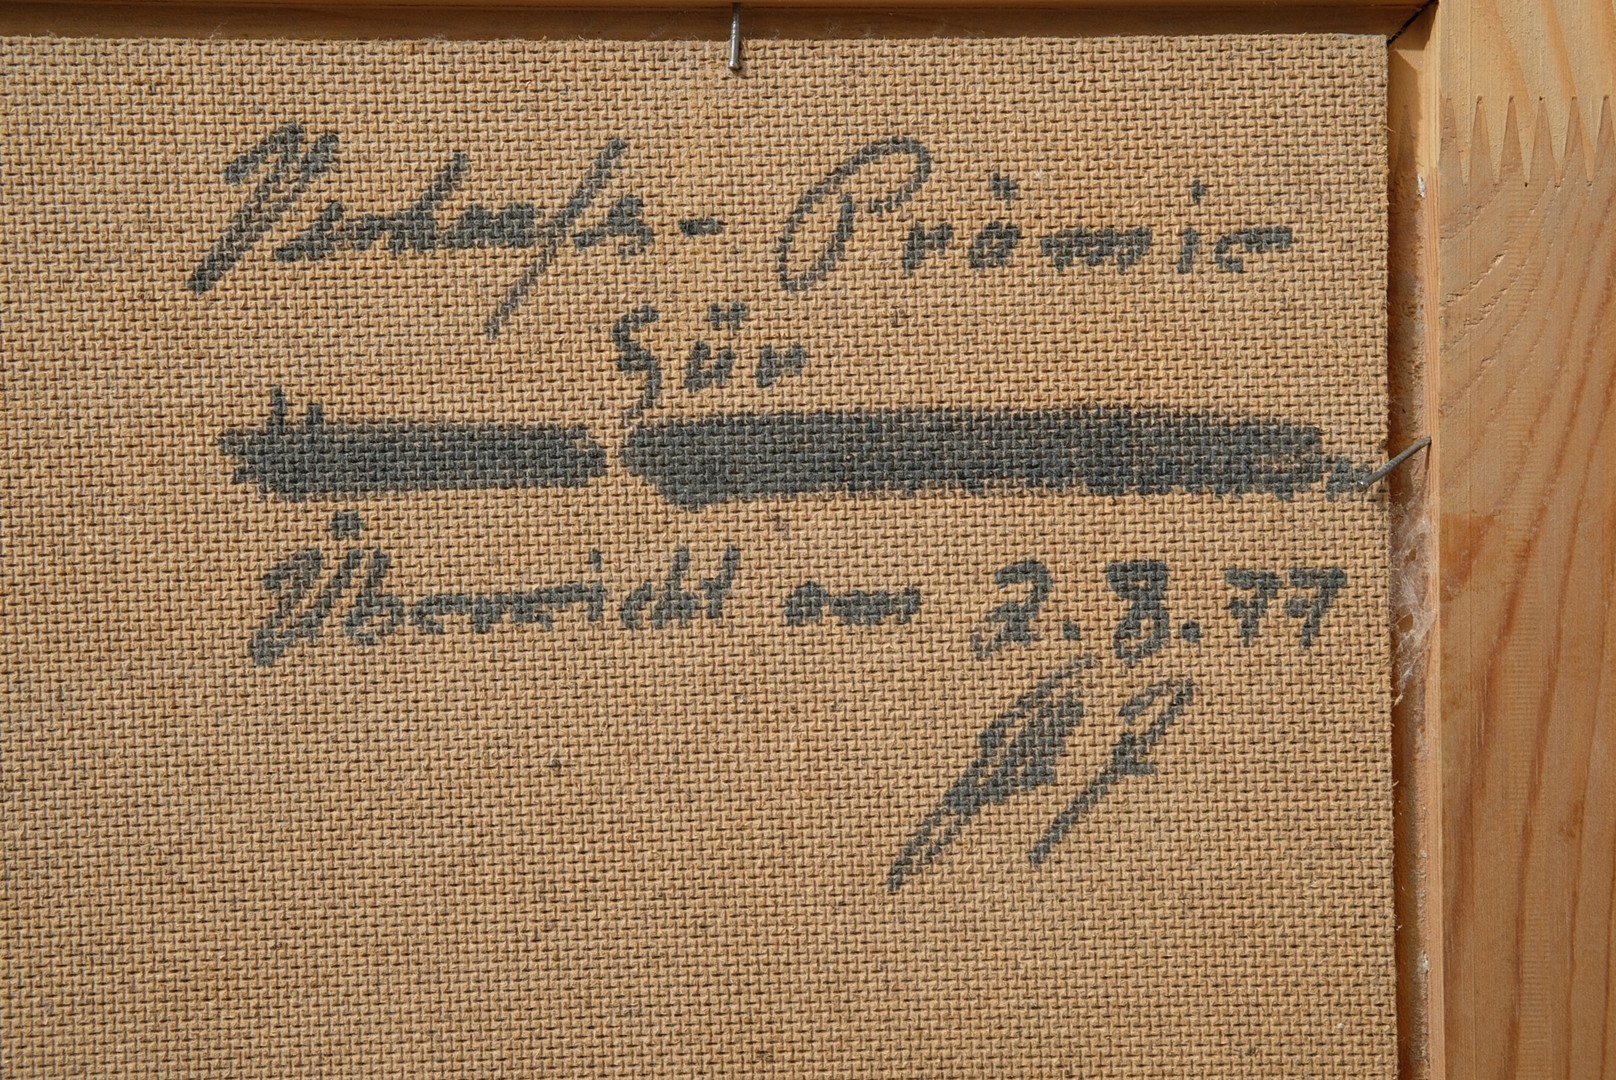 Verkaufs-Prämie
für
Überreicht am 2.8.77